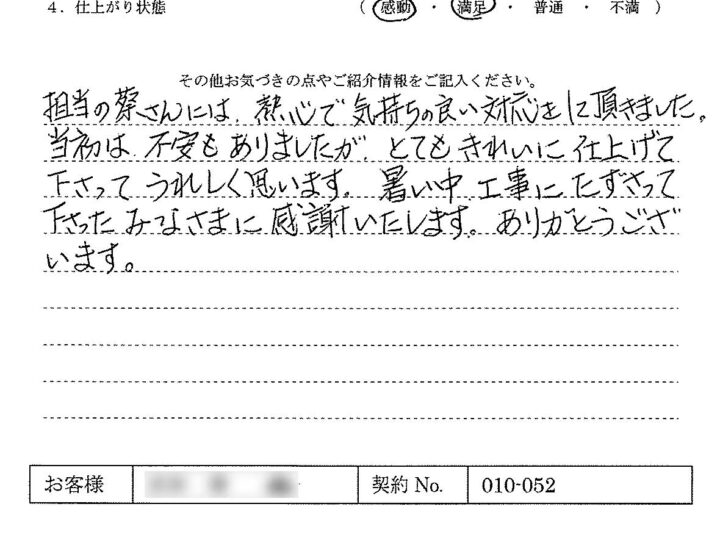 4．仕上がり状態 （ 感動 ・ 満足 ・ 普通 ・ 不満 ）
その他お気づきの点やご紹介情報をご記入ください。
担当の蔡さんには、熱心で気持ちの良い対応をして頂きました。
当初は不安もありましたが、とてもきれいに仕上げて
下さってうれしく思います。暑い中工事にたずさって
下さったみなさまに感謝いたします。ありがとうござ
います。
お客様
契約 No. 010-052